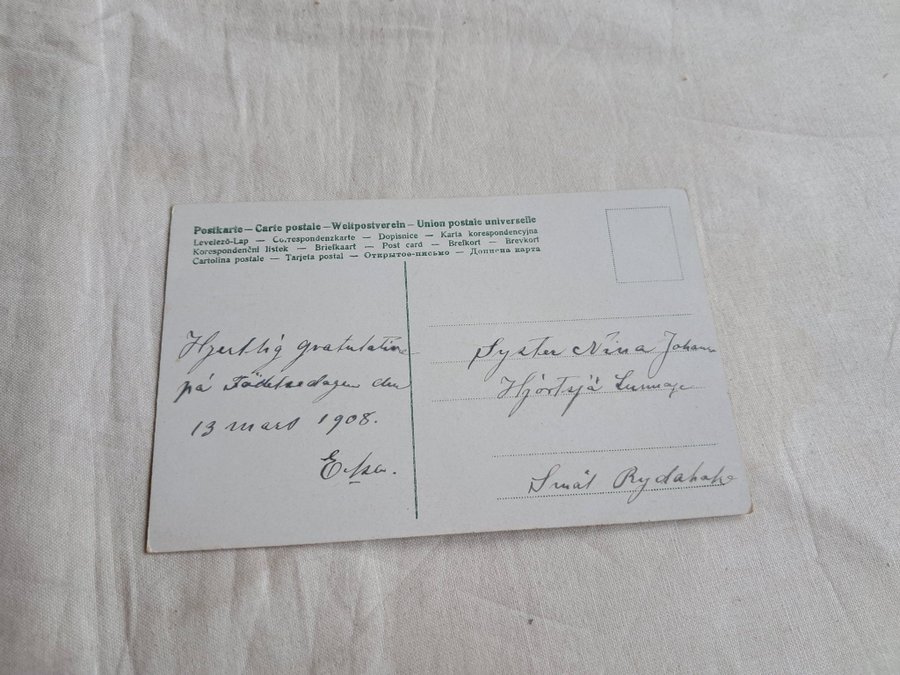 Postkarte — Carte postale — Weltpostverein — Union postale universelle
Levelező-Lap — Co.respondenzkarte — Dopisnice — Karta korespondencyjna
Korespondenční lístek — Briefkaart — Post card — Brefkort — Brevkort
Cartolina postale — Tarjeta postal — Открытое-письмо — Дописна карта
Hjertlig gratulation
på Födelsedagen den
13 mars 1908.
Syster Nina Johans
Hjörtsjö
Smål Rydaholm